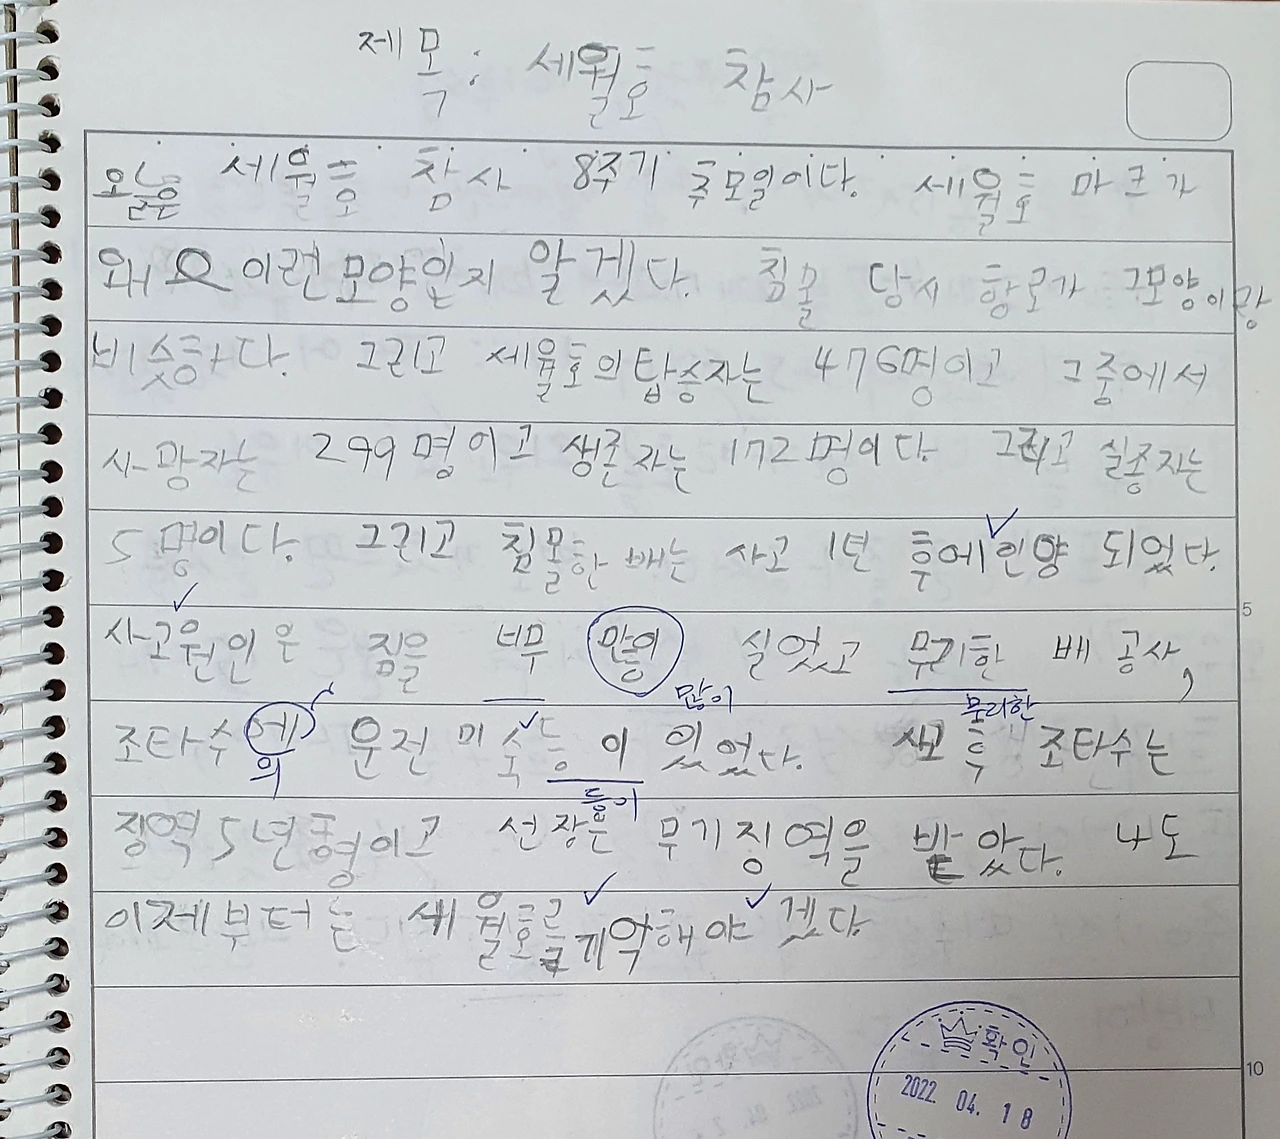 제목 : 세월호 참사
오늘은 세월호 참사 8주기 추모일이다. 세월호 마크가
왜 이런모양인지 알겠다. 침몰 당시 항로가 그모양이랑
비슷하다. 그리고 세월호의탑승자는 476명이고 그중에서
사망자는 299명이고 생존자는 172명이다. 그리고 실종자는
5명이다. 그리고 침몰한 배는 사고 1년 후에인양 되었다.
5
사고원인은 짐을 너무 만이 실었고 무기한 배 공사,
많이 무리한
조타수에 운전 미숙등 이 있었다. 사고 후 조타수는
의 등이
징역5년형이고 선장은 무기징역을 받았다. 나도
이제부터는 세월호를기억해야겠다
확인
2022. 04. 18
10